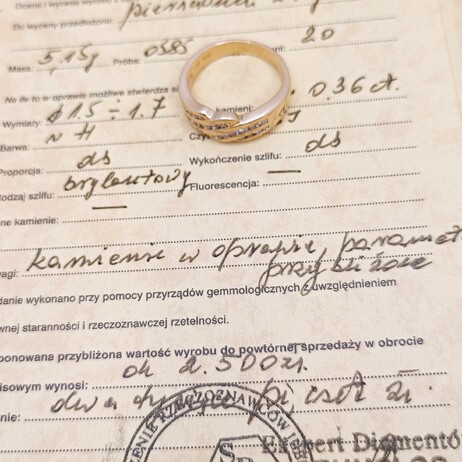 Ocena i wycena wyrobu
Do wyceny przedłożono: pierścionek
Masa: 5,15g Próba: 0,585 20
Na ile to w oprawie możliwe stwierdza
Wymiary: ø 1.5 ÷ 1.7 kamieni: 0.36 ct.
Barwa: ~ H
Proporcja: ds Wykończenie szlifu: ds
odzaj szlifu: brylantowy Fluorescencja: —
ne kamienie: —
agi: kamienie w oprawie, paramet
przybliżone
danie wykonano przy pomocy przyrządów gemmologicznych z uwzględnieniem
wnej staranności i rzeczoznawczej rzetelności.
ponowana przybliżona wartość wyrobu do powtórnej sprzedaży w obrocie
isowym wynosi: ok 2.500 zł.
nie: dwa tysiące pięćset zł.
ENIE RZECZOZNAWCÓW
Ekspert Diamentów